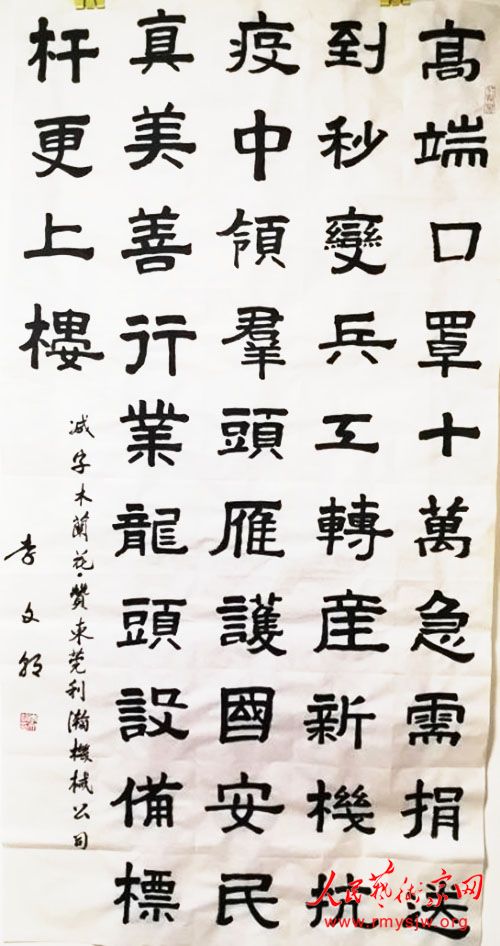 高端口罩十萬急需捐送
到秒變兵工轉產新機抗
疫中領羣頭雁護國安民
真美善行業龍頭設備標
杆更上樓
减字木蘭花·贊東莞利瀚機械公司
李文朝
人民藝術家网
www.rmysjw.org